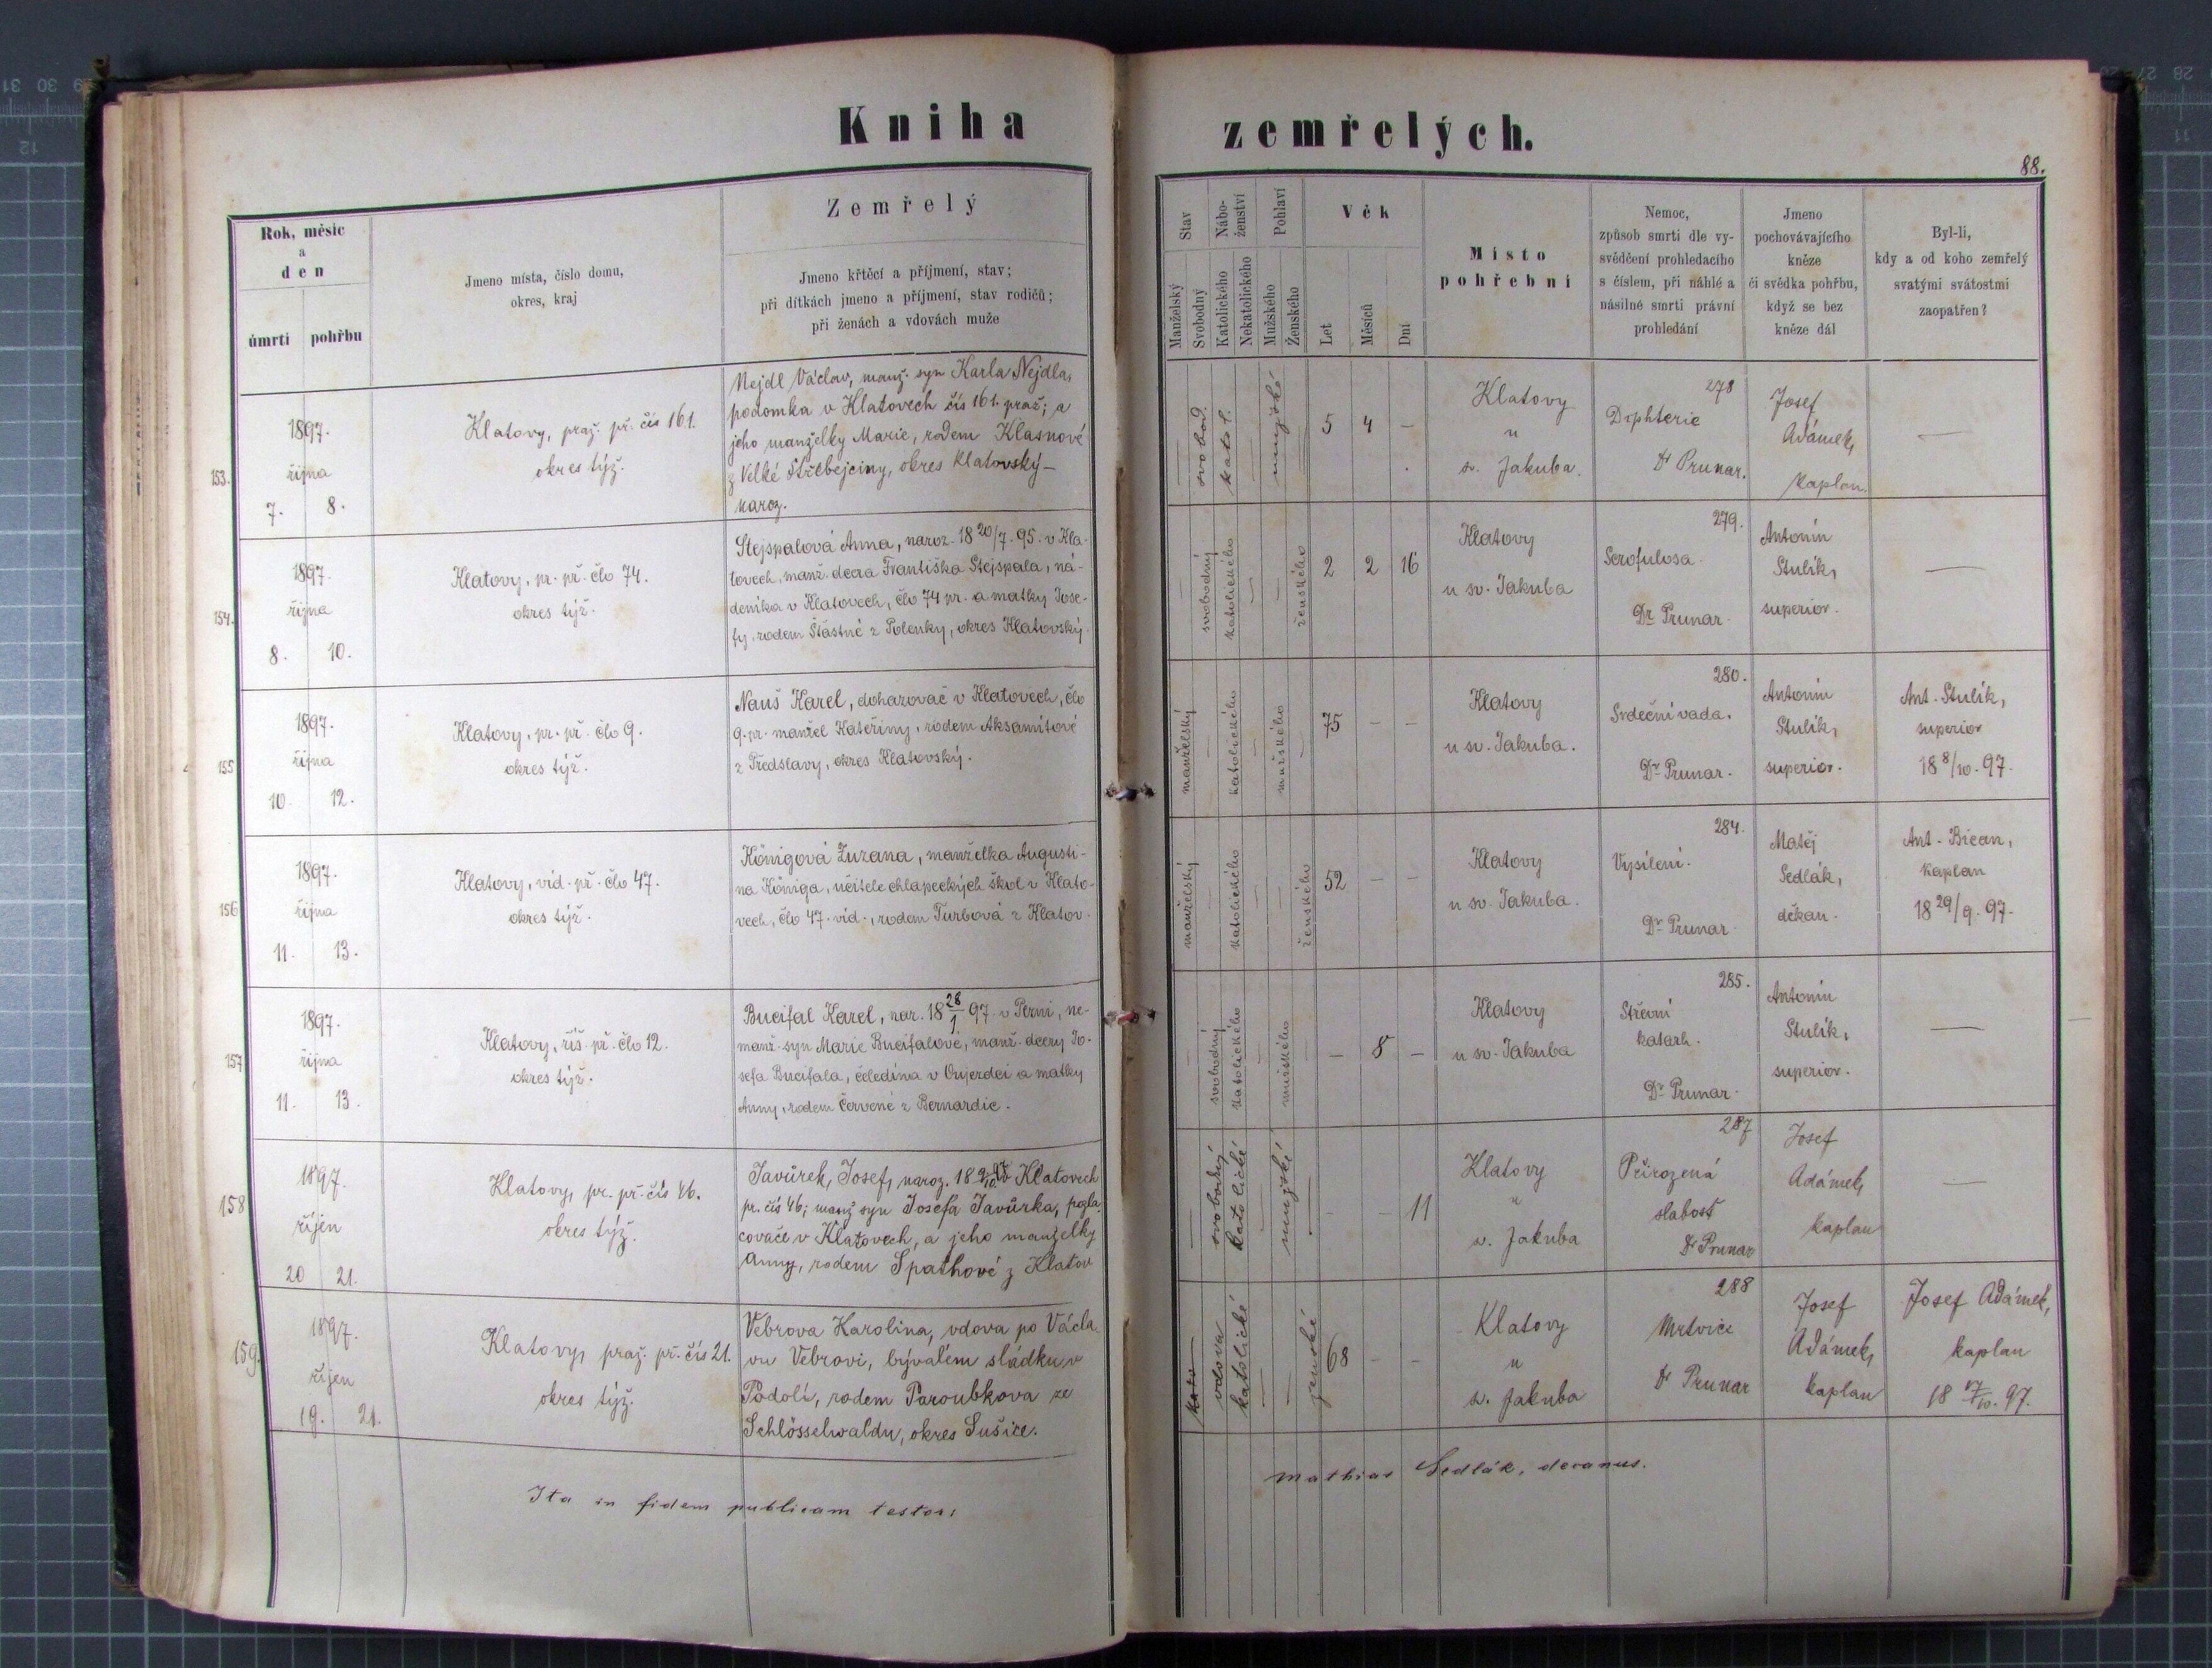 Kniha zemřelých.
88.
Rok, měsíc
a
den
úmrtí pohřbu
Jmeno místa, číslo domu,
okres, kraj
Zemřelý
Jmeno křtěcí a příjmení, stav;
při dítkách jmeno a příjmení, stav rodičů;
při ženách a vdovách muže
Stav
Manželský
Svobodný
Nábo-
ženství
Katolického
Nekatolického
Pohlaví
Mužského
Ženského
Věk
Let
Měsíců
Dní
Místo
pohřební
Nemoc,
způsob smrti dle vy-
svědčení prohledacího
s číslem, při náhlé a
násilné smrti právní
prohledání
Jmeno
pochovávajícího
kněze
či svědka pohřbu,
když se bez
kněze dál
Byl-li,
kdy a od koho zemřelý
svatými svátostmi
zaopatřen?
153.
1897.
října
7. 8.
Klatovy, praž. př. čís 161.
okres týž.
Nejdl Václav, manž. syn Karla Nejdla,
podomka v Klatovech čís 161. praž; a
jeho manželky Marie, rodem Klasnové
z Velké Střebejčiny, okres Klatovský –
naroz.
svobod.
katol.
mužské
5 4 –
Klatovy
u
sv. Jakuba.
278
Diphterie
Dr Prunar.
Josef
Adámek,
kaplan.
—
154.
1897.
října
8. 10.
Klatovy, pr. př. člo 74.
okres týž.
Stejspalová Anna, naroz. 18 20/7. 95. v Kla-
tovech, manž. dcera Františka Stejspala, ná-
deníka v Klatovech, člo 74 pr. a matky Jose-
fy, rodem Šťastné z Polenky, okres Klatovský.
svobodný
katolického
ženského
2 2 16
Klatovy
u sv. Jakuba
279.
Scrofulosa.
Dr Prunar.
Antonín
Stulík,
superior.
—
155
1897.
října
10. 12.
Klatovy, pr. př. člo 9.
okres týž.
Nauš Karel, dohazovač v Klatovech, člo
9. pr. manžel Kateřiny, rodem Aksamitové
z Předslavy, okres Klatovský.
manželský
katolického
mužského
75 – –
Klatovy
u sv. Jakuba.
280.
Srdeční vada.
Dr Prunar.
Antonín
Stulík,
superior.
Ant. Stulík,
superior
18 8/10. 97.
156
1897.
října
11. 13.
Klatovy, víd. př. člo 47.
okres týž.
Königová Zuzana, manželka Augusti-
na Königa, učitele chlapeckých škol v Klato-
vech, člo 47. víd., rodem Turbová z Klatov.
manželský
katolického
ženského
52 – –
Klatovy
u sv. Jakuba.
284.
Vysílení.
Dr Prunar
Matěj
Sedlák,
děkan.
Ant. Bican,
kaplan
18 29/9. 97.
157
1897.
října
11. 13.
Klatovy, říš. př. člo 12.
okres týž.
Bucifal Karel, nar. 18 28/1. 97. v Perni, ne-
manž. syn Marie Bucifalové, manž. dcery Jo-
sefa Bucifala, čeledína v Oujezdci a matky
Anny, rodem Červené z Bernardic.
svobodný
katolického
mužského
– 8 –
Klatovy
u sv. Jakuba
285.
Střevní
katarh.
Dr Prunar.
Antonín
Stulík,
superior.
—
158
1897.
říjen
20 21.
Klatovy, pr. př. čís 46.
okres týž.
Javůrek, Josef, naroz. 18 9/10 97 v Klatovech
pr. čís 46; manž syn Josefa Javůrka, pozla-
covače v Klatovech, a jeho manželky
Anny, rodem Spathové z Klatov
svobodný
katolické
mužské
– – 11
Klatovy
u
sv. Jakuba
287
Přirozená
slabost
Dr Prunar
Josef
Adámek,
kaplan
—
159.
1897.
říjen
19. 21.
Klatovy, praž. př. čís 21.
okres týž.
Vebrova Karolina, vdova po Václa-
vu Vebrovi, bývalém sládku v
Podolí, rodem Paroubkova ze
Schlösselwaldu, okres Sušice.
kato
vdova
katolické
ženské
68 – –
Klatovy
u
sv. Jakuba
288
Mrtvice
Dr Prunar
Josef
Adámek,
kaplan
Josef Adámek,
kaplan
18 17/10. 97.
Ita in fidem publicam testor:
Mathias Sedlák, decanus.